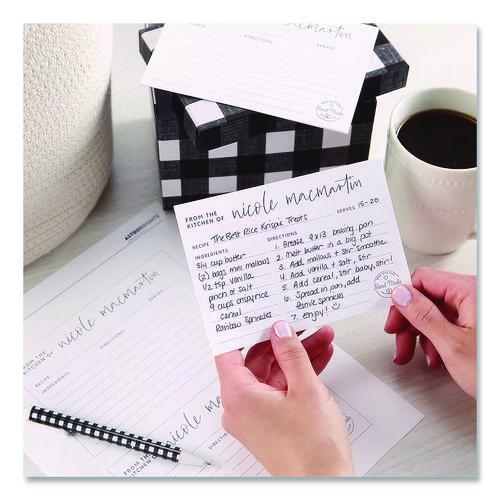 macmartin
DIRECTIONS
SERVES
FROM THE
KITCHEN OF
nicole macmartin
RECIPE The Best Rice Krispie Treats
SERVES 15-20
INGREDIENTS
3/4 cup butter
(2) bags mini mallows
1/2 tsp vanilla
pinch of salt
9 cups crisp rice
cereal
Rainbow Sprinkles
DIRECTIONS
1. Grease 9x13 baking pan
2. Melt butter in a big pot
3. Add mallows + stir smoothe
4. Add vanilla + salt, stir
5. Add cereal, stir baby, stir!
6. Spread in pan, add
festive sprinkles
7. Enjoy!
Hand Made
ASTROBRIGHTS
FROM THE
KITCHEN OF
nicole macmartin
RECIPE
SERVES
INGREDIENTS
DIRECTIONS
FROM THE
KITCHEN OF
nicole
DIRECTIONS